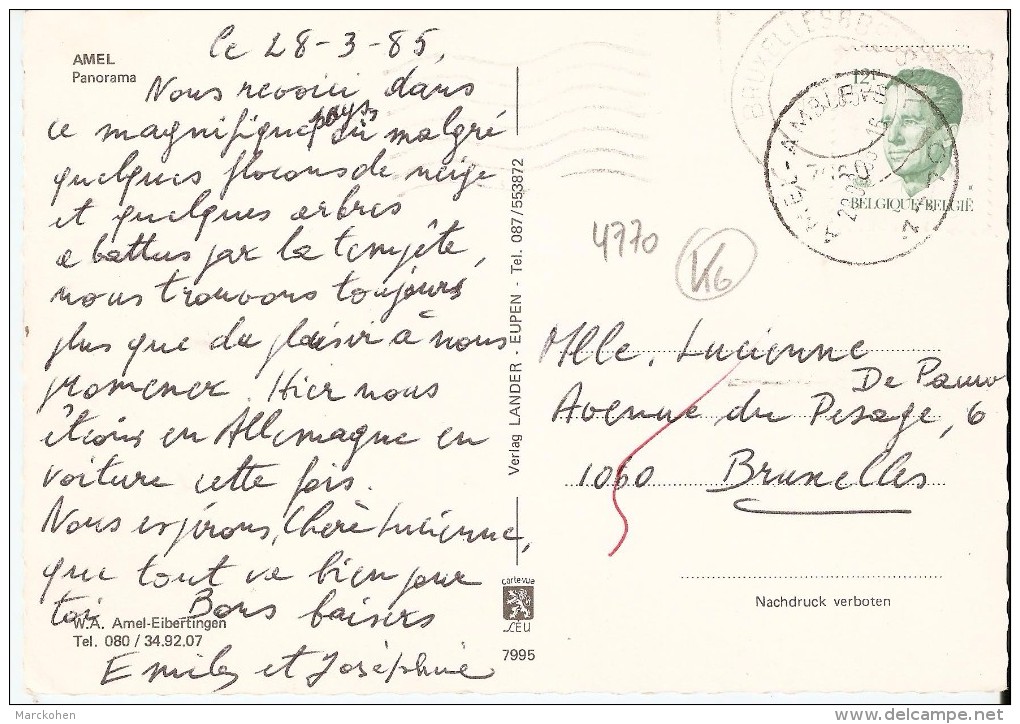 AMEL
Panorama
Ce 28-3-85,
Nous revoici dans
ce magnifique pays, où malgré
quelques flocons de neige
et quelques arbres
abattus par la tempête,
nous trouvons toujours
plus que du plaisir à nous
promener. Hier nous
étions en Allemagne en
voiture cette fois.
Nous espérons, Chère Lucienne,
que tout va bien pour
toi. Bons baisers
Emile et Joséphine
W.A. Amel-Eibertingen
Tel. 080 / 34.92.07
Verlag LANDER - EUPEN - Tel. 087/553872
cartevue
LEU
7995
BRUXELLES
12F
BELGIQUE-BELGIË
AMEL-AMBLEVE
4770
Mlle. Lucienne
De Pauw
Avenue du Pesage, 6
1060 Bruxelles
Nachdruck verboten
Marckohen
delcampe.net